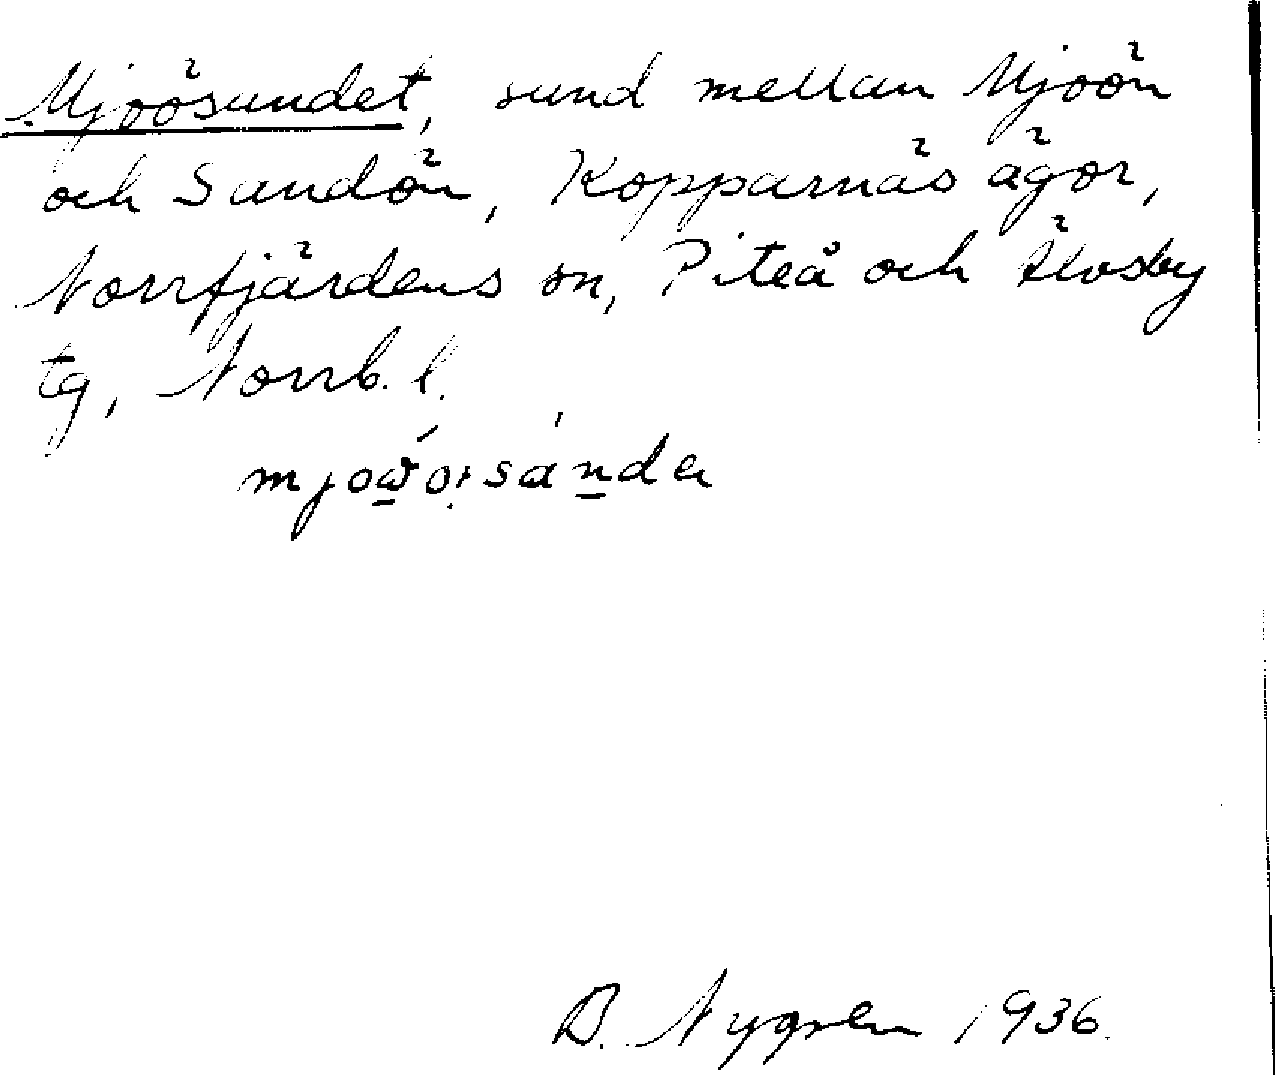 Mjoösundet, sund mellan Mjoön
och Sandön, Kopparnäs ägor,
Norrfjärdens sn, Piteå och Älvsby
tg, Norrb. l.
B. Nygren 1936.